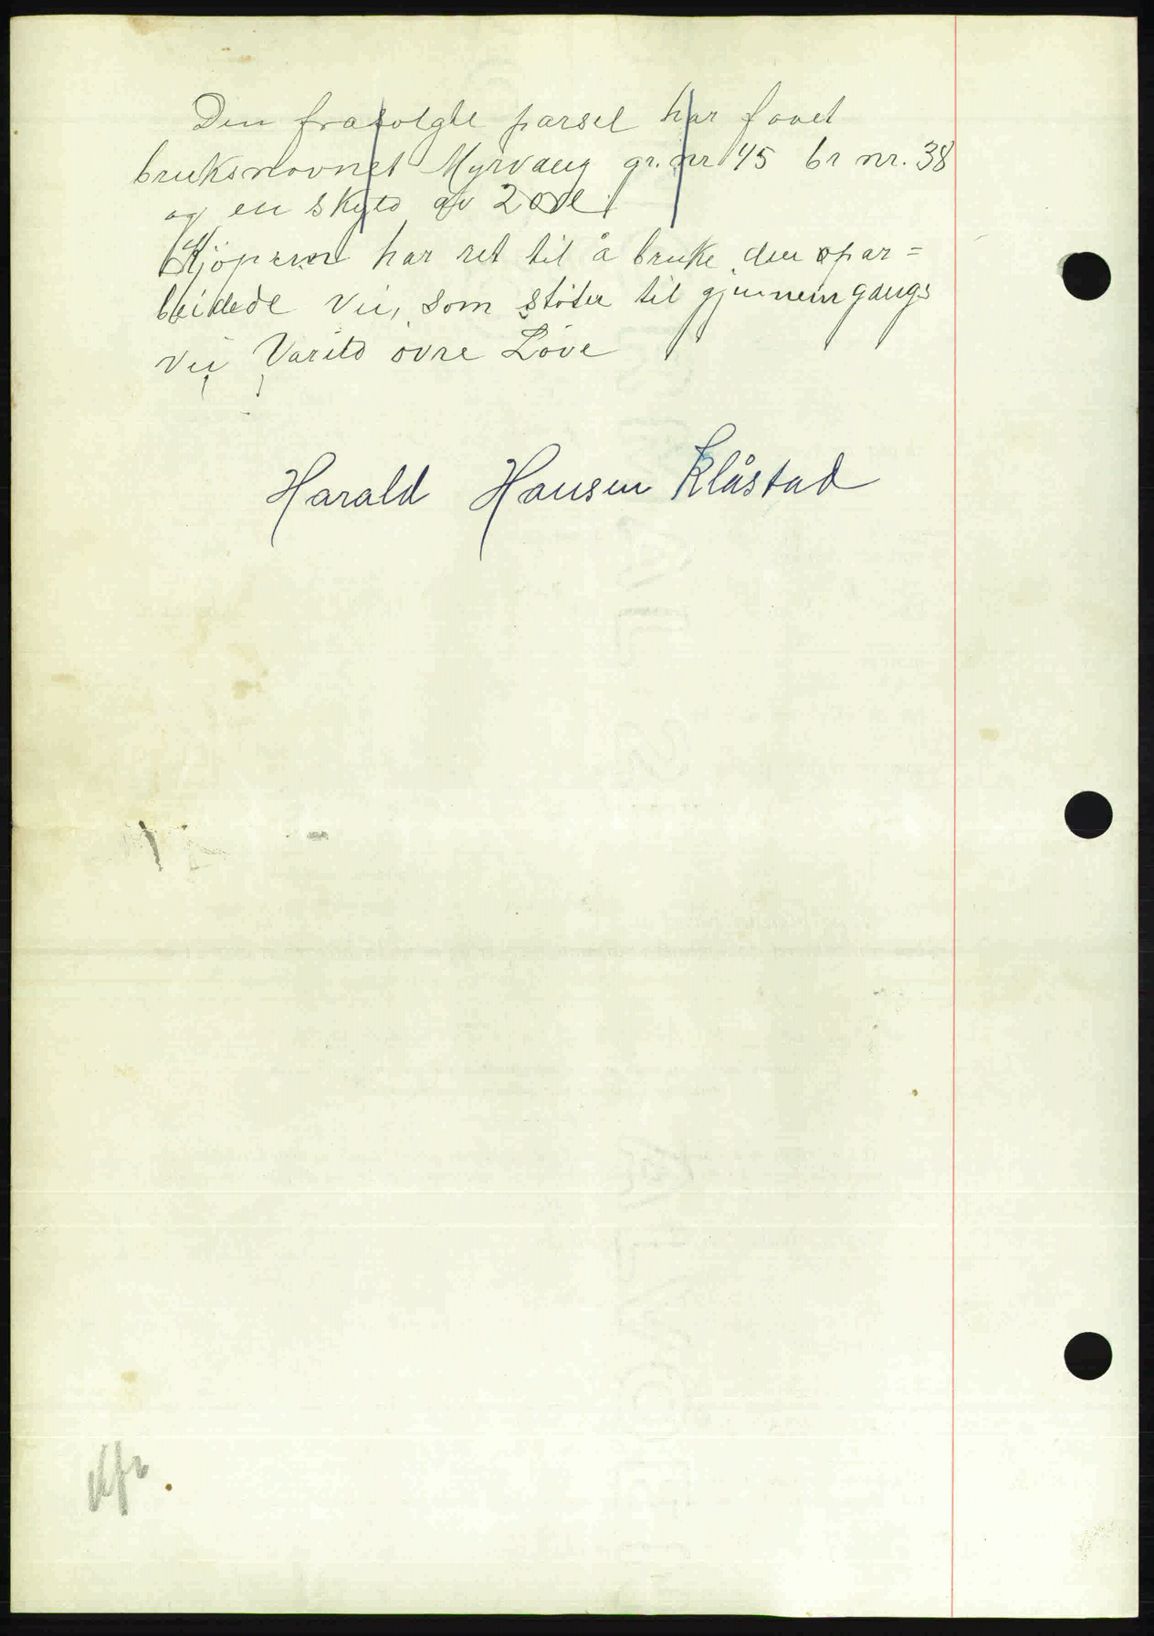 Den frasolgte parsel har faaet
bruksnavnet Myrvang gr. nr 45 br nr. 38
og en skyld av 2 øre
Kjöperen har ret til å bruke den opar=
beidede vei, som støter til gjennemgangs
vei Varild øvre Løve
Harald Hansen Klåstad